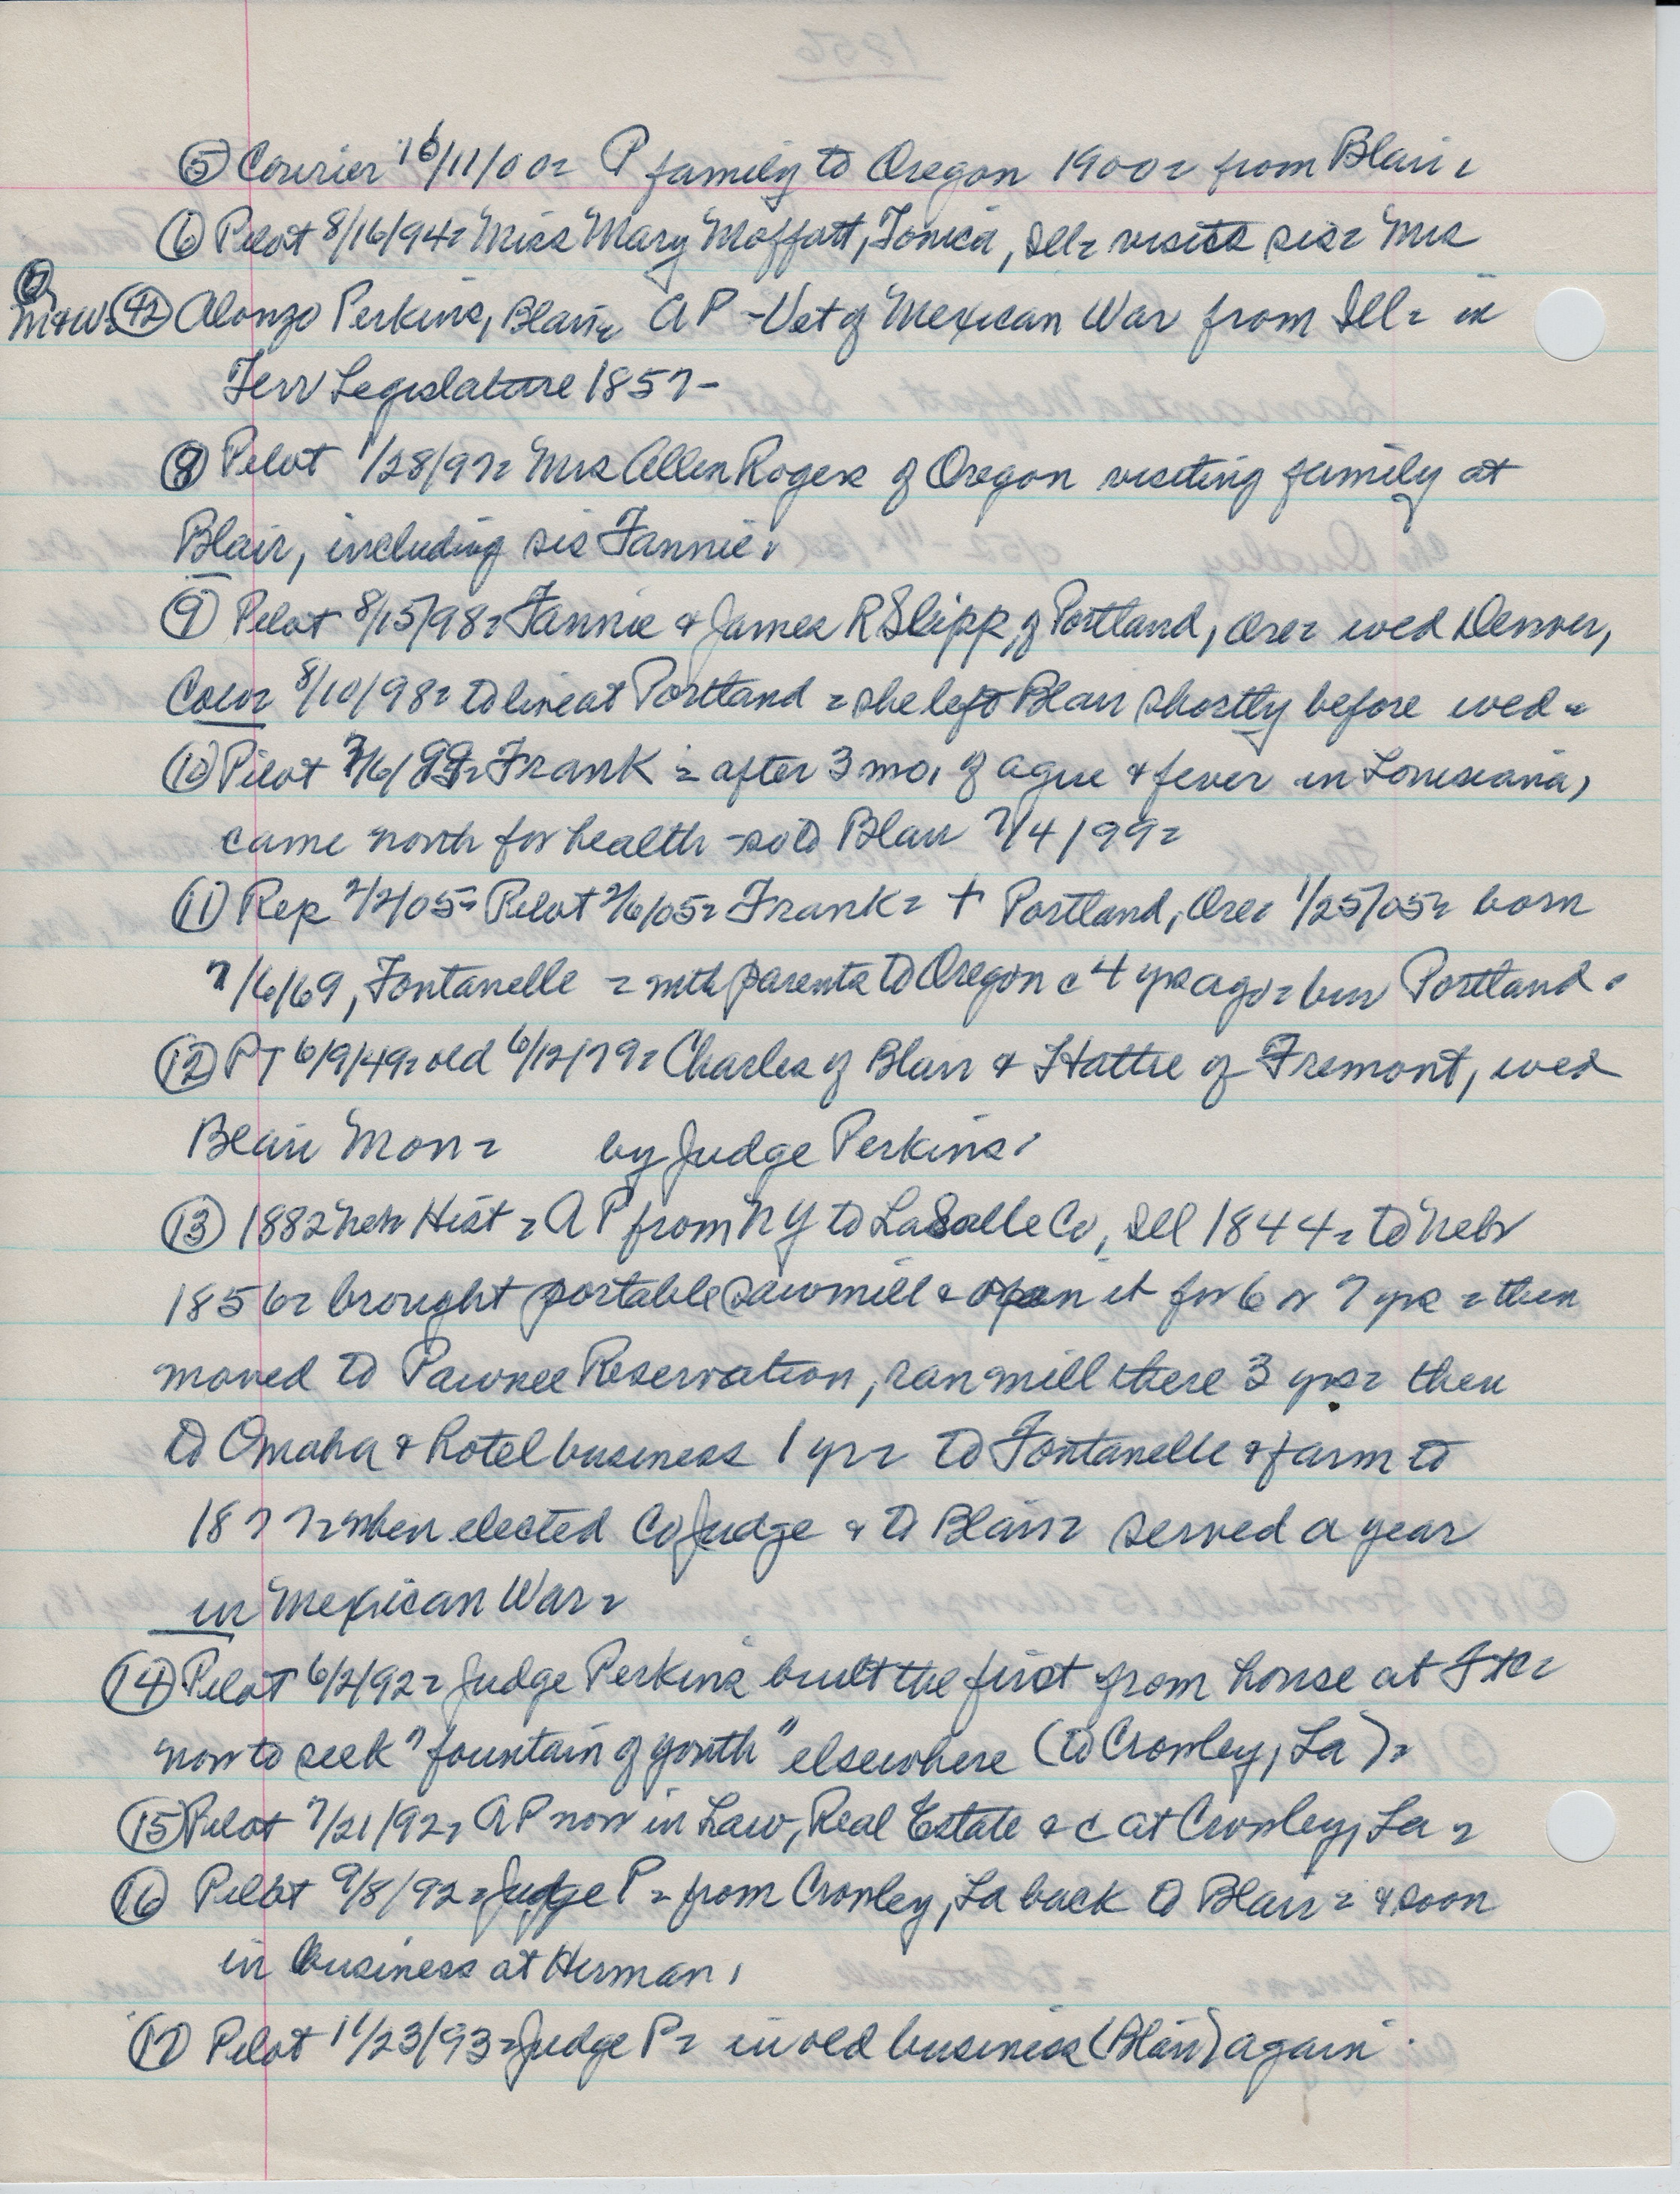 ⑤ Courier 10/11/00= P family to Oregon 1900= from Blair=
⑥ Pilot 8/16/94= Miss Mary Moffatt, Tonica, Ill= visits sis= Mrs
⑦ M&W= ㊷ Alonzo Perkins, Blair= AP - Vet of Mexican War from Ill= in
Terr Legislature 1857-
⑧ Pilot 1/28/97= Mrs Allen Rogers of Oregon visiting family at
Blair, including sis Fannie.
⑨ Pilot 8/15/98= Fannie & James R Slipp, of Portland, Ore= wed Denver,
Colo= 8/10/98= to live at Portland = she left Blair shortly before wed=
⑩ Pilot 7/6/99= Frank = after 3 mo. of ague & fever in Louisiana,
came north for health - so to Blair 7/4/99=
⑪ Rep 2/2/05= Pilot 2/6/05= Frank= + Portland, Ore= 1/25/05= born
7/6/69, Fontanelle = with parents to Oregon c 4 yrs ago= bur Portland.
⑫ PT 6/9/49= old 6/12/79= Charles of Blair & Hattie of Fremont, wed
Blair Mon= by Judge Perkins.
⑬ 1882 Neb Hist = AP from NY to LaSalle Co, Ill 1844= to Nebr
1856= brought portable sawmill & ran it for 6 or 7 yrs = then
moved to Pawnee Reservation, ran mill there 3 yrs= then
to Omaha & hotel business 1 yr= to Fontanelle & farm to
1877= when elected Co Judge & to Blair= served a year
in Mexican War=
⑭ Pilot 6/2/92= Judge Perkins built the first from house at
now to seek "fountain of youth" elsewhere (to Crowley, La)=
⑮ Pilot 7/21/92= AP now in Law, Real Estate &c at Crowley, La=
⑯ Pilot 9/8/92= Judge P= from Crowley, La back to Blair= & soon
in business at Herman.
⑰ Pilot 11/23/93= Judge P= in old business (Blair) again.